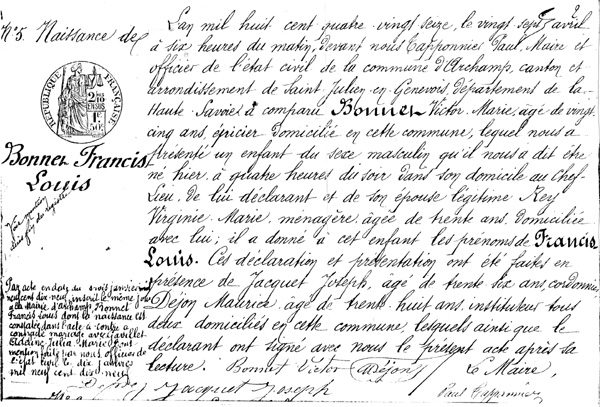 2
N° 5. Naissance de
RÉPUBLIQUE FRANÇAISE
Bonnet Francis
Louis
L'an mil huit cent quatre-vingt seize, le vingt sept avril
à six heures du matin, devant nous Capponnier Paul, Maire et
officier de l'état civil de la commune d'Archamp, canton et
arrondissement de Saint-Julien-en-Genevois, département de la
Haute-Savoie, a comparu Bonnet Victor-Marie, âgé de vingt-
cinq ans, épicier domicilié en cette commune, lequel nous a
présenté un enfant du sexe masculin qu'il nous a dit être
né hier, à quatre heures du soir dans son domicile au Chef-
Lieu, de lui déclarant et de son épouse légitime Rey
Virginie-Marie, ménagère, âgée de trente ans, domiciliée
avec lui; il a donné à cet enfant les prénoms de Francis
Louis. Ces déclaration et présentation ont été faites en
présence de Jacquet Joseph, âgé de trente six ans, cordonnier
Dejon Maurice, âgé de trente-huit ans, instituteur tous
deux domiciliés en cette commune, lesquels ainsi que le
déclarant ont signé avec nous le présent acte après sa
lecture. Bonnet Victor Dejon Le Maire,
Jacquet Joseph Paul Capponnier
Par acte en date du trois janvier
neuf cent dix neuf inscrit le même jour
Bonnet
Francis Louis dont la naissance est
constatée dans l'acte ci-contre a
contracté mariage avec
Julia Marie
mention faite par nous officier de
l'état civil le dix janvier
mil neuf cent dix neuf